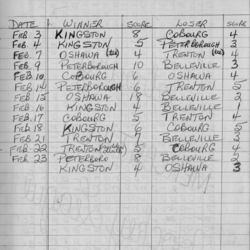 DATE WINNER SCORE LOSER SCORE
FEB 3 KINGSTON 8 COBOURG 4
FEB. 4 KINGSTON 5 PETERBOROUGH 3
FEB. 7 OSHAWA 4 TRENTON 4
FEB. 9 PETERBOROUGH 10 BELLEVILLE 3
FEB 10 COBOURG 6 OSHAWA 4
FEB 14 PETERBOROUGH 6 TRENTON 5
FEB 15 OSHAWA 18 BELLEVILLE 2
FEB 16 KINGSTON 4 BELLEVILLE 2
FEB. 17 COBOURG 5 TRENTON 4
FEB 18 KINGSTON 6 COBOURG 5
FEB 21 TRENTON 7 BELLEVILLE 3
FEB. 22 TRENTON 5 COBOURG 4
FEB 23 PETERBORO 8 BELLEVILLE 2
KINGSTON 4 OSHAWA 3